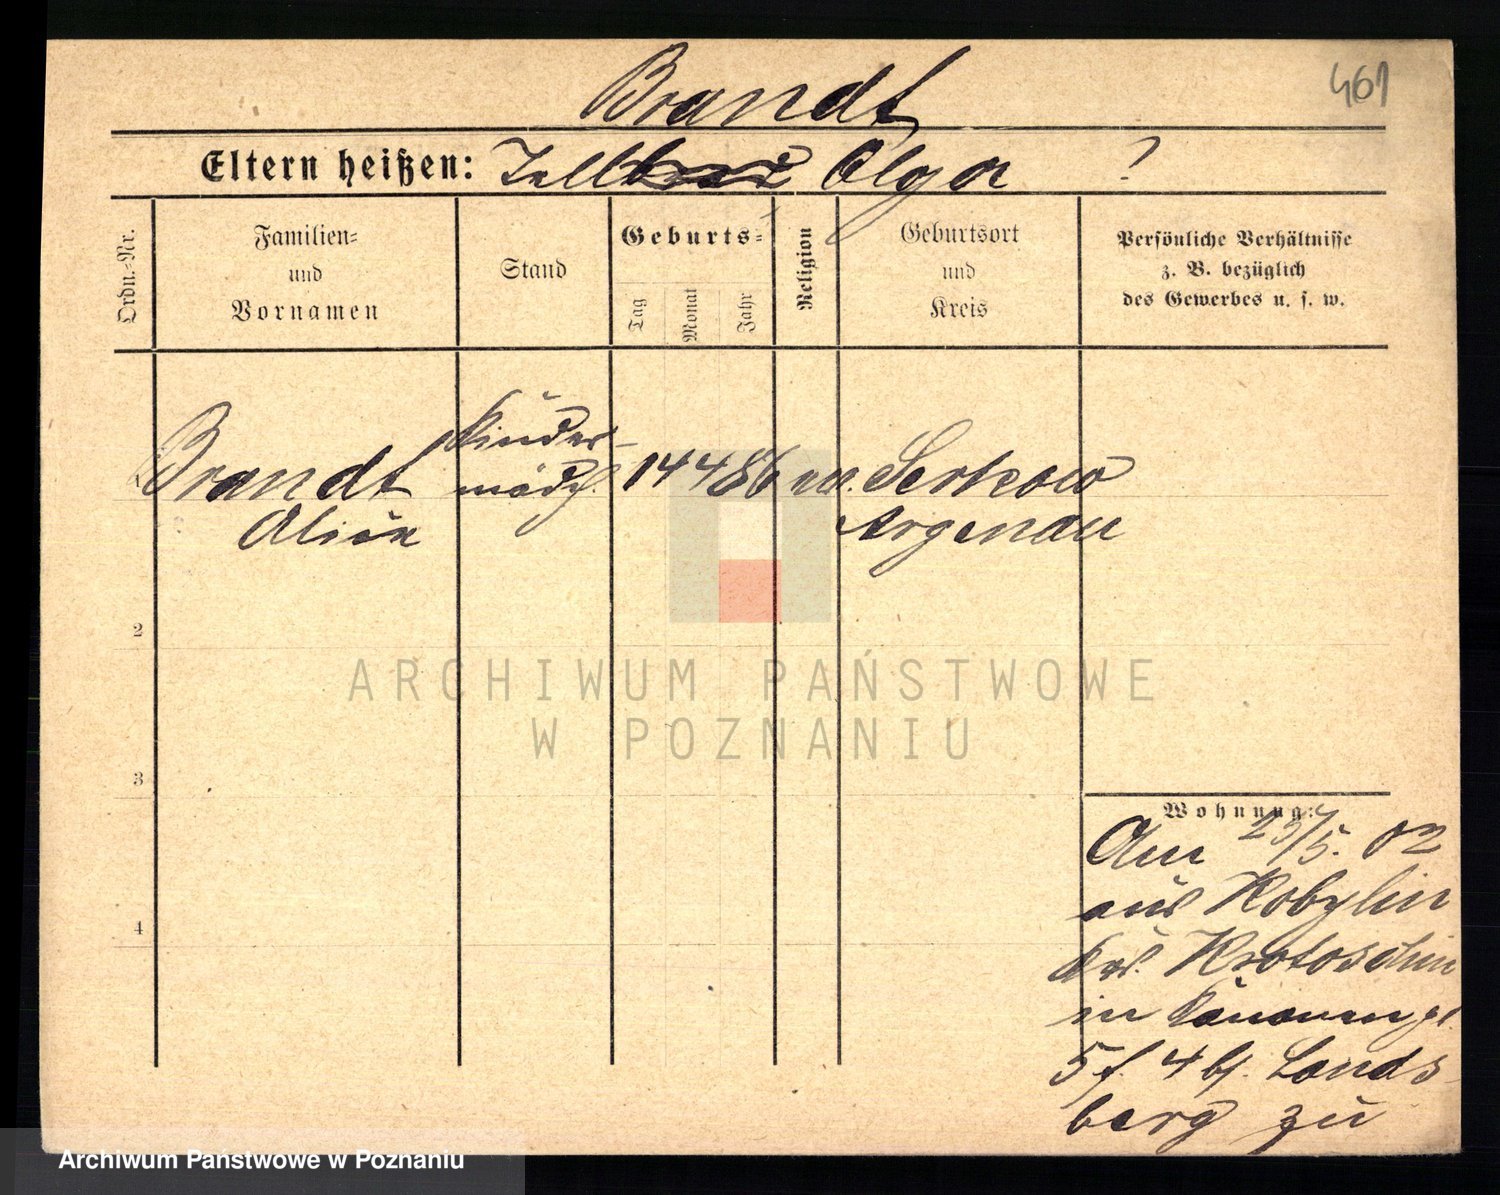 461
Brandt
Eltern heißen: Olga ?
Ordn.-Nr.
Familien-
und
Vornamen
Stand
Geburts-
Tag
Monat
Jahr
Religion
Geburtsort
und
Kreis
Persönliche Verhältnisse
z. B. bezüglich
des Gewerbes u. s. w.
Brandt
Kinder-
mädch. 14 4 86
Argenau
2
3
4
ARCHIWUM PAŃSTWOWE
W POZNANIU
Wohnung:
Am 23/5. 02
aus Kobylin
Krs. Krotoschin
in
5 f. 4 bj. Lands-
berg zu
Archiwum Państwowe w Poznaniu